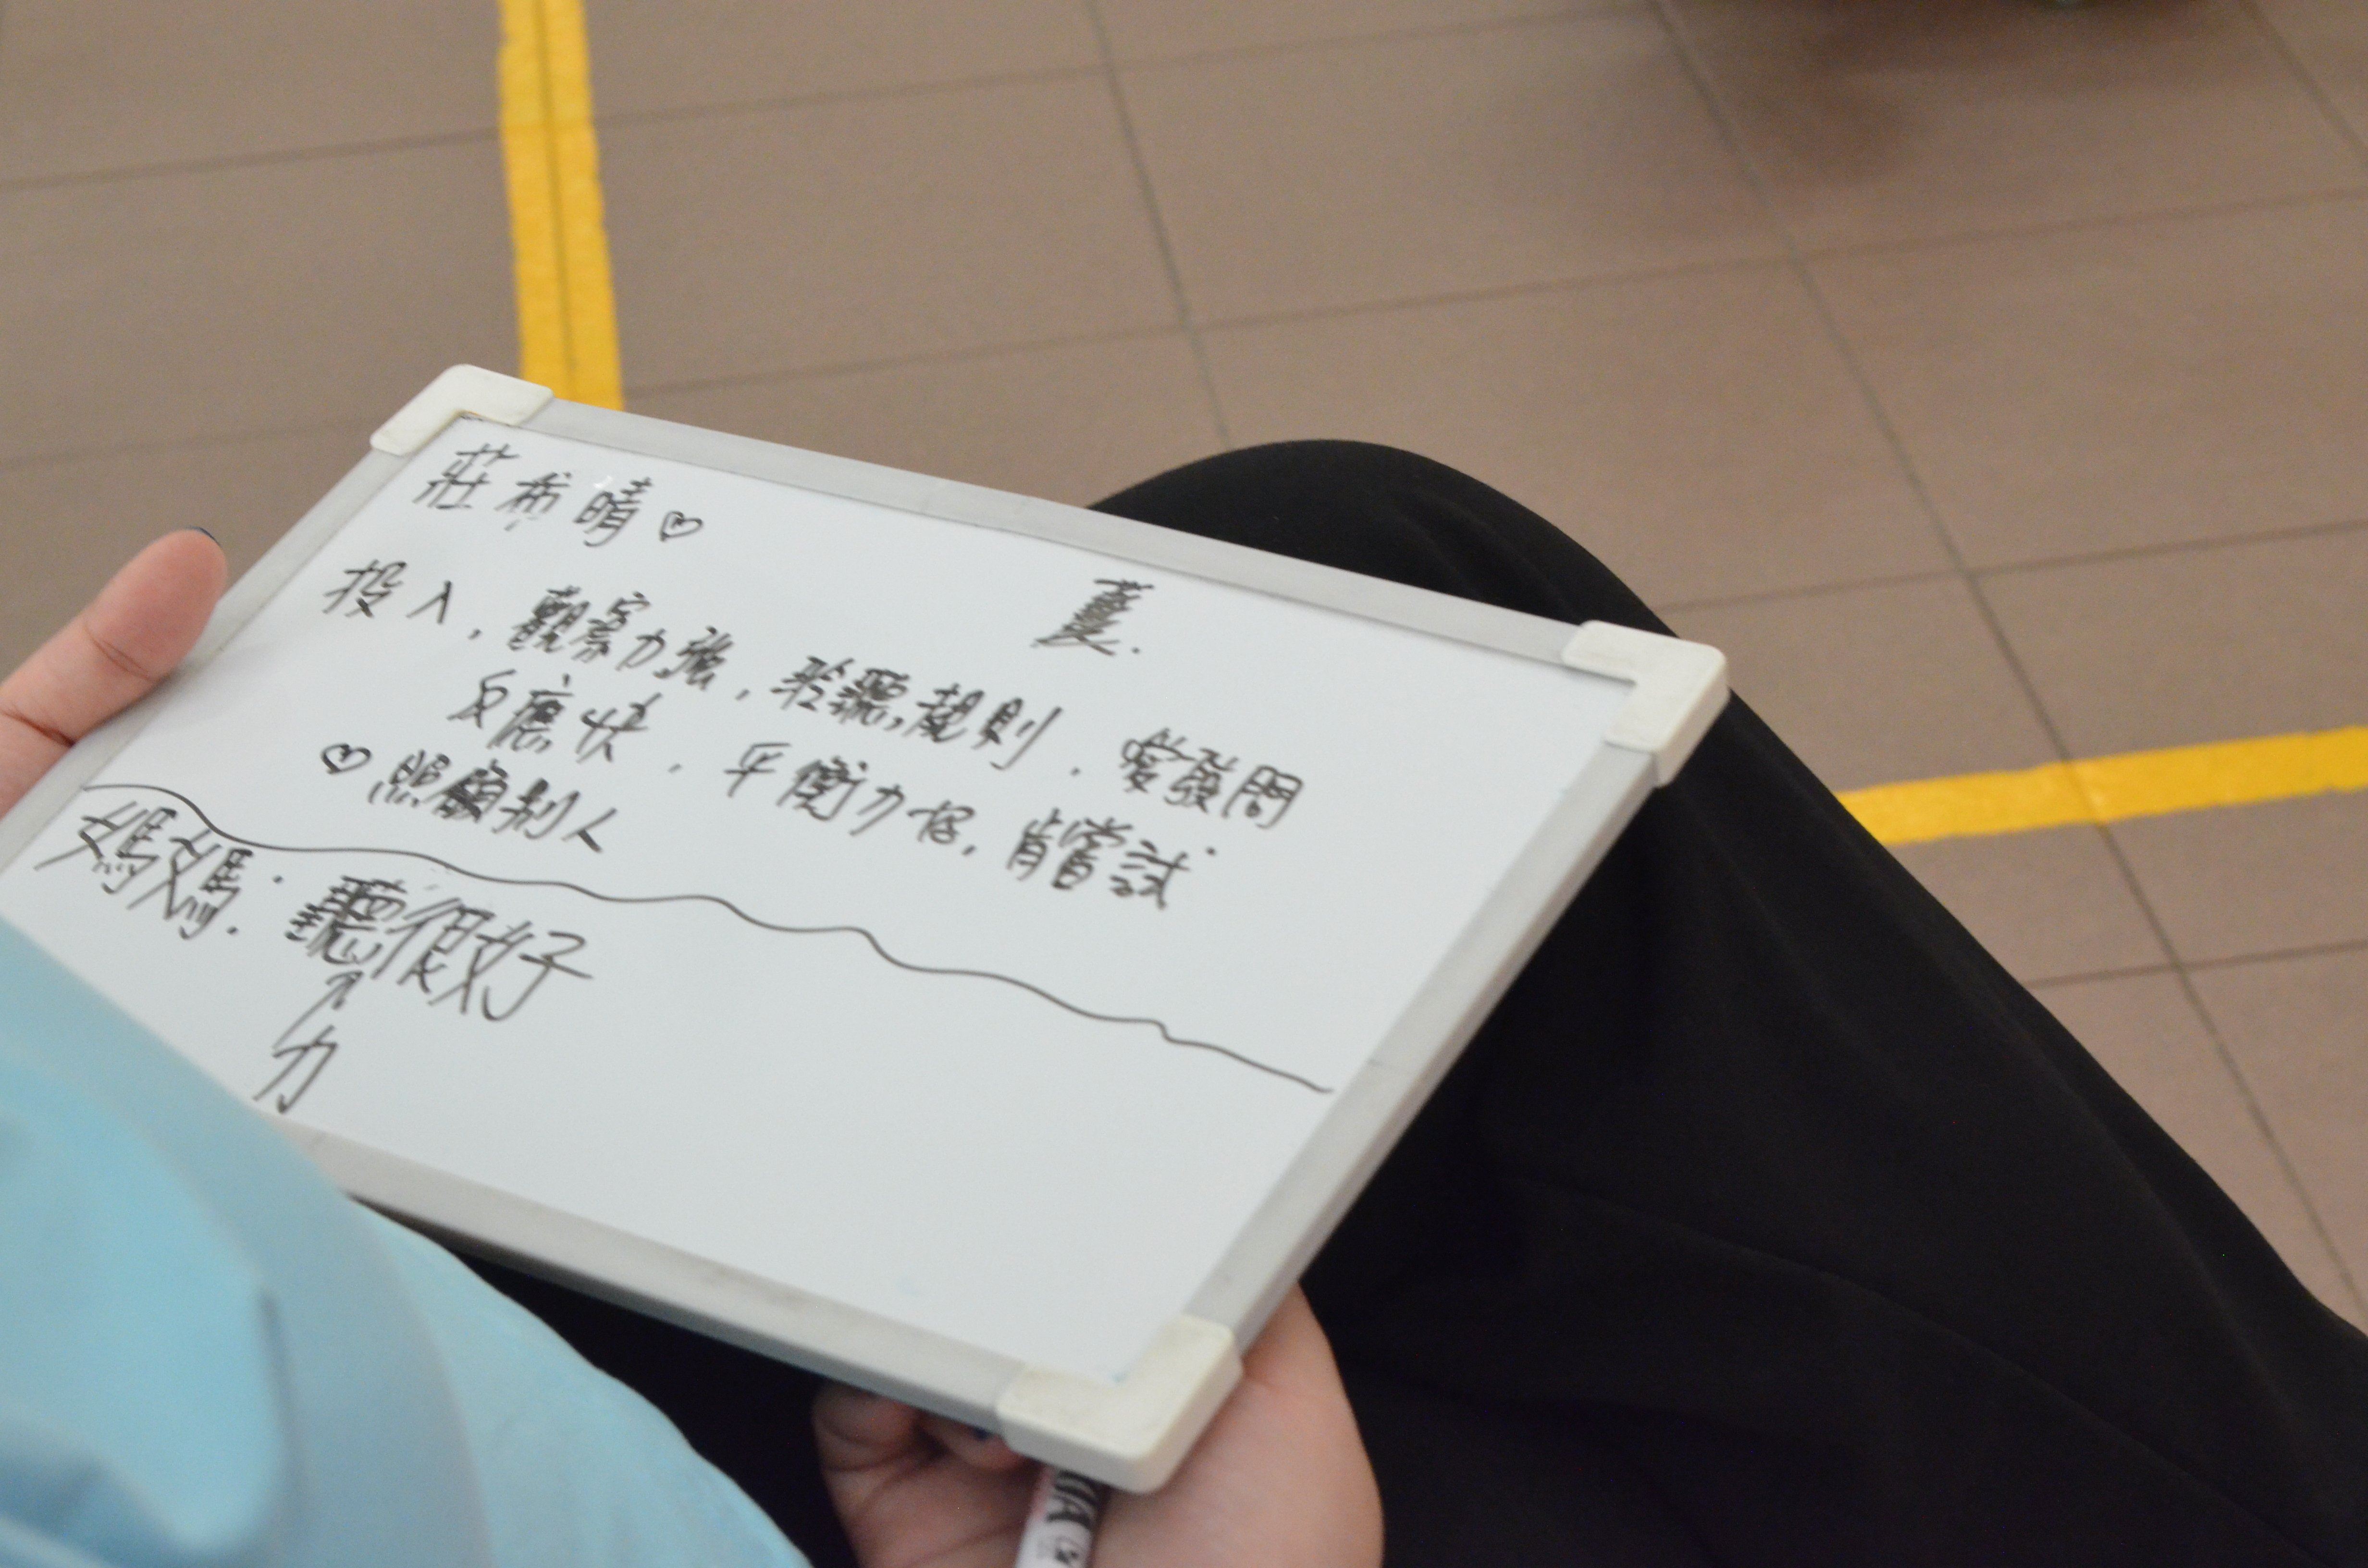 莊 晴♡
薹.
投入，觀察力強，聆聽規則，愛發問
反應快，平衡力好，肯嘗試
♡照顧別人
媽媽：聽很好
力